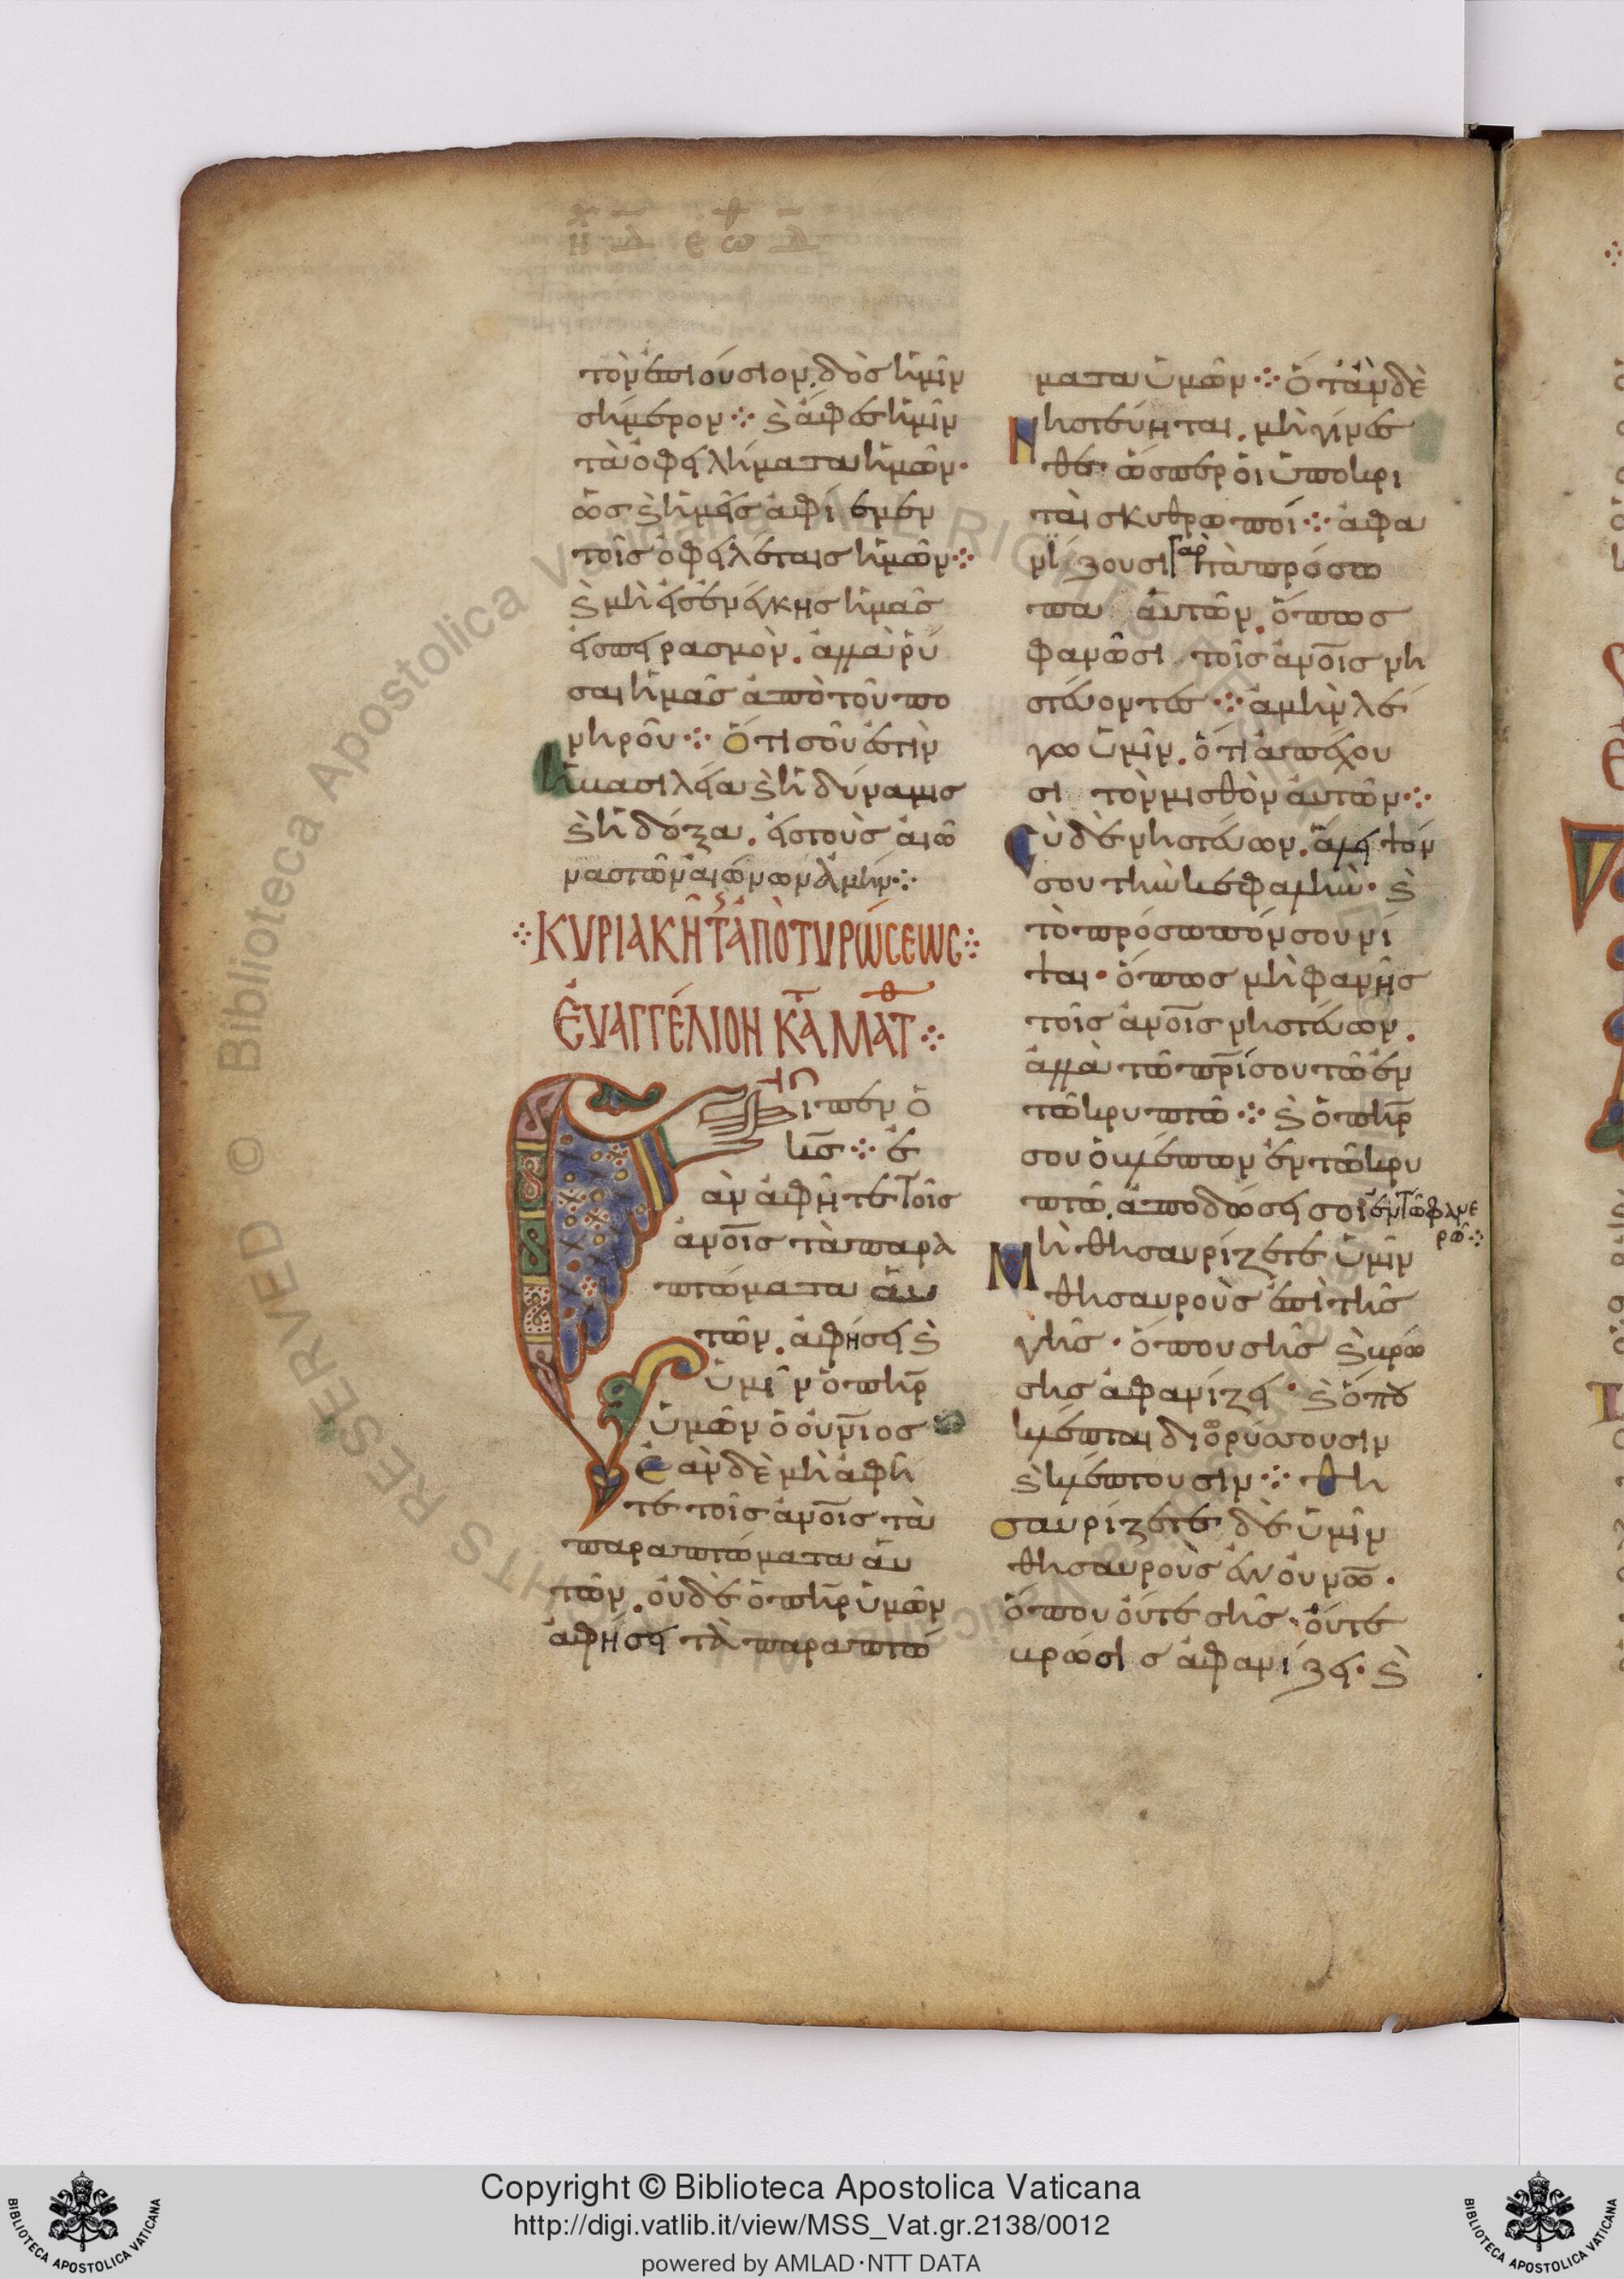 τὸν ἐπιούσιον. δὸς ἡμῖν
σήμερον ⁘ ϗ ἄφες ἡμῖν
τὰ ὀφειλήματα ἡμῶν·
ὡς ϗ ἡμεῖς ἀφίεμεν
τοῖς ὀφειλέταις ἡμῶν ⁘
ϗ μὴ εἰσενείγκης ἡμᾶς
εἰς πειρασμὸν. ἀλλὰ ῥύ
σαι ἡμᾶς ἀπὸ τοῦ πο
νηροῦ ⁘ Ὅτι σοῦ ἐστὶν
ἡ βασιλεία ϗ ἡ δύναμις
ϗ ἡ δόξα. εἰς τοὺς αἰῶ
νας τῶν αἰώνων ἀμήν ⁘
⁘ ΚΥΡΙΑΚΗ Τ ἈΠῸ ΤΥΡΏCΕΩC ⁘
ἘΥΑΓΓΈΛΙΟΝ ΚΑ ΜΑΤΘ ⁘
Εἶπεν ὁ
κ̅ς̅ ⁘ ἐ
ὰν ἀφῆτε τοῖς
ἀνο̅ις τὰ παρα
πτώματα αὐ
τῶν. ἀφήσει ϗ
ὑμῖν ὁ πη̅ρ
ὑμῶν ὁ οὐν̅ιος
Ἐὰν δὲ μὴ ἀφῆ
τε τοῖς ἀνο̅ις τὰ
παραπτώματα αὐ
τῶν. οὐδὲ ὁ πη̅ρ ὑμῶν
ἀφήσει τὰ παραπτώ
ματα ὑμῶν ⁘ Ὅταν δὲ
Νηστεύηται. μὴ γίνεσ
θε· ὥσπερ οἱ ὑποκρι
ταὶ σκυθρωποί ⁘ ἀφα
νίζουσι γὰρ τὰ πρόσω
πα αὐτῶν. ὅπως
φανῶσι τοῖς ἀνο̅ις νη
στεύοντες ⁘ ἀμὴν λέ
γω ὑμῖν. ὅτι ἀπέχου
σι τὸν μισθὸν αὐτῶν ⁘
Cὺ δὲ νηστεύων. ἄλειψόν
σου τὴν κεφαλὴν· ϗ
τὸ πρόσωπόν σου νί
ψαι· ὅπως μὴ φανῆς
τοῖς ἀνο̅ις νηστεύων.
ἀλλὰ τῶ πρ̅ί σου τῶ ἐν
τῶ κρυπτῶ ⁘ ϗ ὁ πη̅ρ
σου ὁ βλέπων ἐν τῶ κρυ
πτῶ. ἀποδώσει σοι ἐν τῶ φανε
ρῶ ⁘
Μὴ θησαυρίζετε ὑμῖν
θησαυροὺς ἐπὶ τῆς
γῆς· ὅπου σὴς ϗ βρῶ
σης ἀφανίζει· ϗ ὅπου
κλέπται διορύσσουσιν
ϗ κλέπτουσιν ⁘ Θη
σαυρίζετε δὲ ὑμῖν
θησαυροὺς ἐν οὐνω̅·
ὅπου οὔτε σὴς· οὔτε
βρῶσις ἀφανίζει· ϗ
Copyright © Biblioteca Apostolica Vaticana
http://digi.vatlib.it/view/MSS_Vat.gr.2138/0012
powered by AMLAD·NTT DATA
BIBLIOTECA APOSTOLICA VATICANA
BIBLIOTECA APOSTOLICA VATICANA